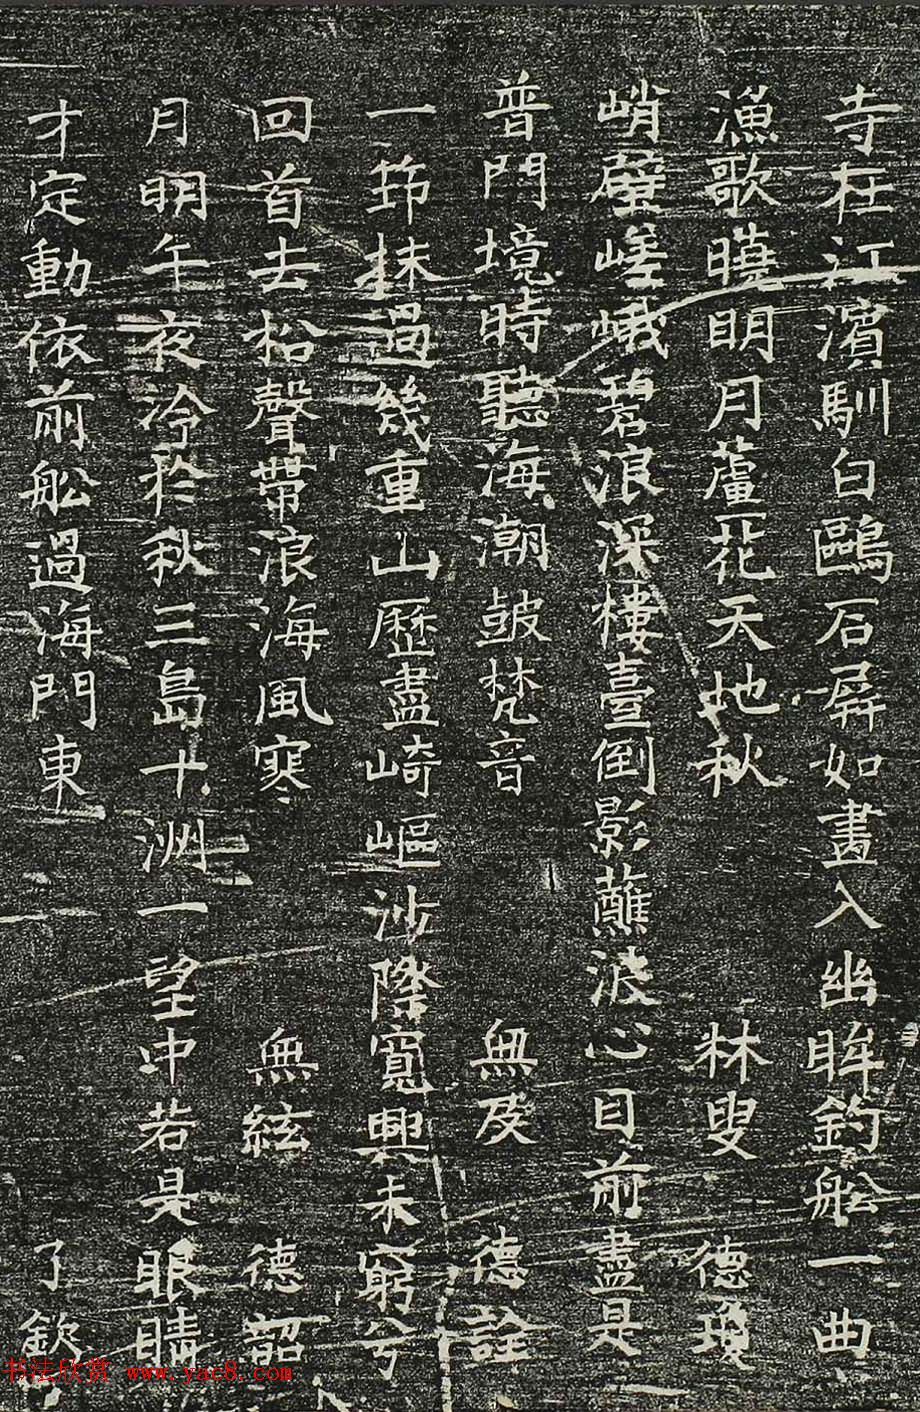 寺在江濱馴白鷗石屏如畫入幽眸釣舩一曲
漁歌曉明月蘆花天地秋 林叟 德瓊
峭壁嵯峨碧浪深樓臺倒影蘸波心目前盡是
普門境時聽海潮皷梵音 無及 德詮
一笻抹過幾重山歷盡崎嶇沙際寬興未窮兮
回首去松聲帶浪海風寒 無絃 德韶
月明午夜冷於秋三島十洲一望中若是眼睛
才定動依前舩過海門東 了欽
书法欣赏 www.yac8.com